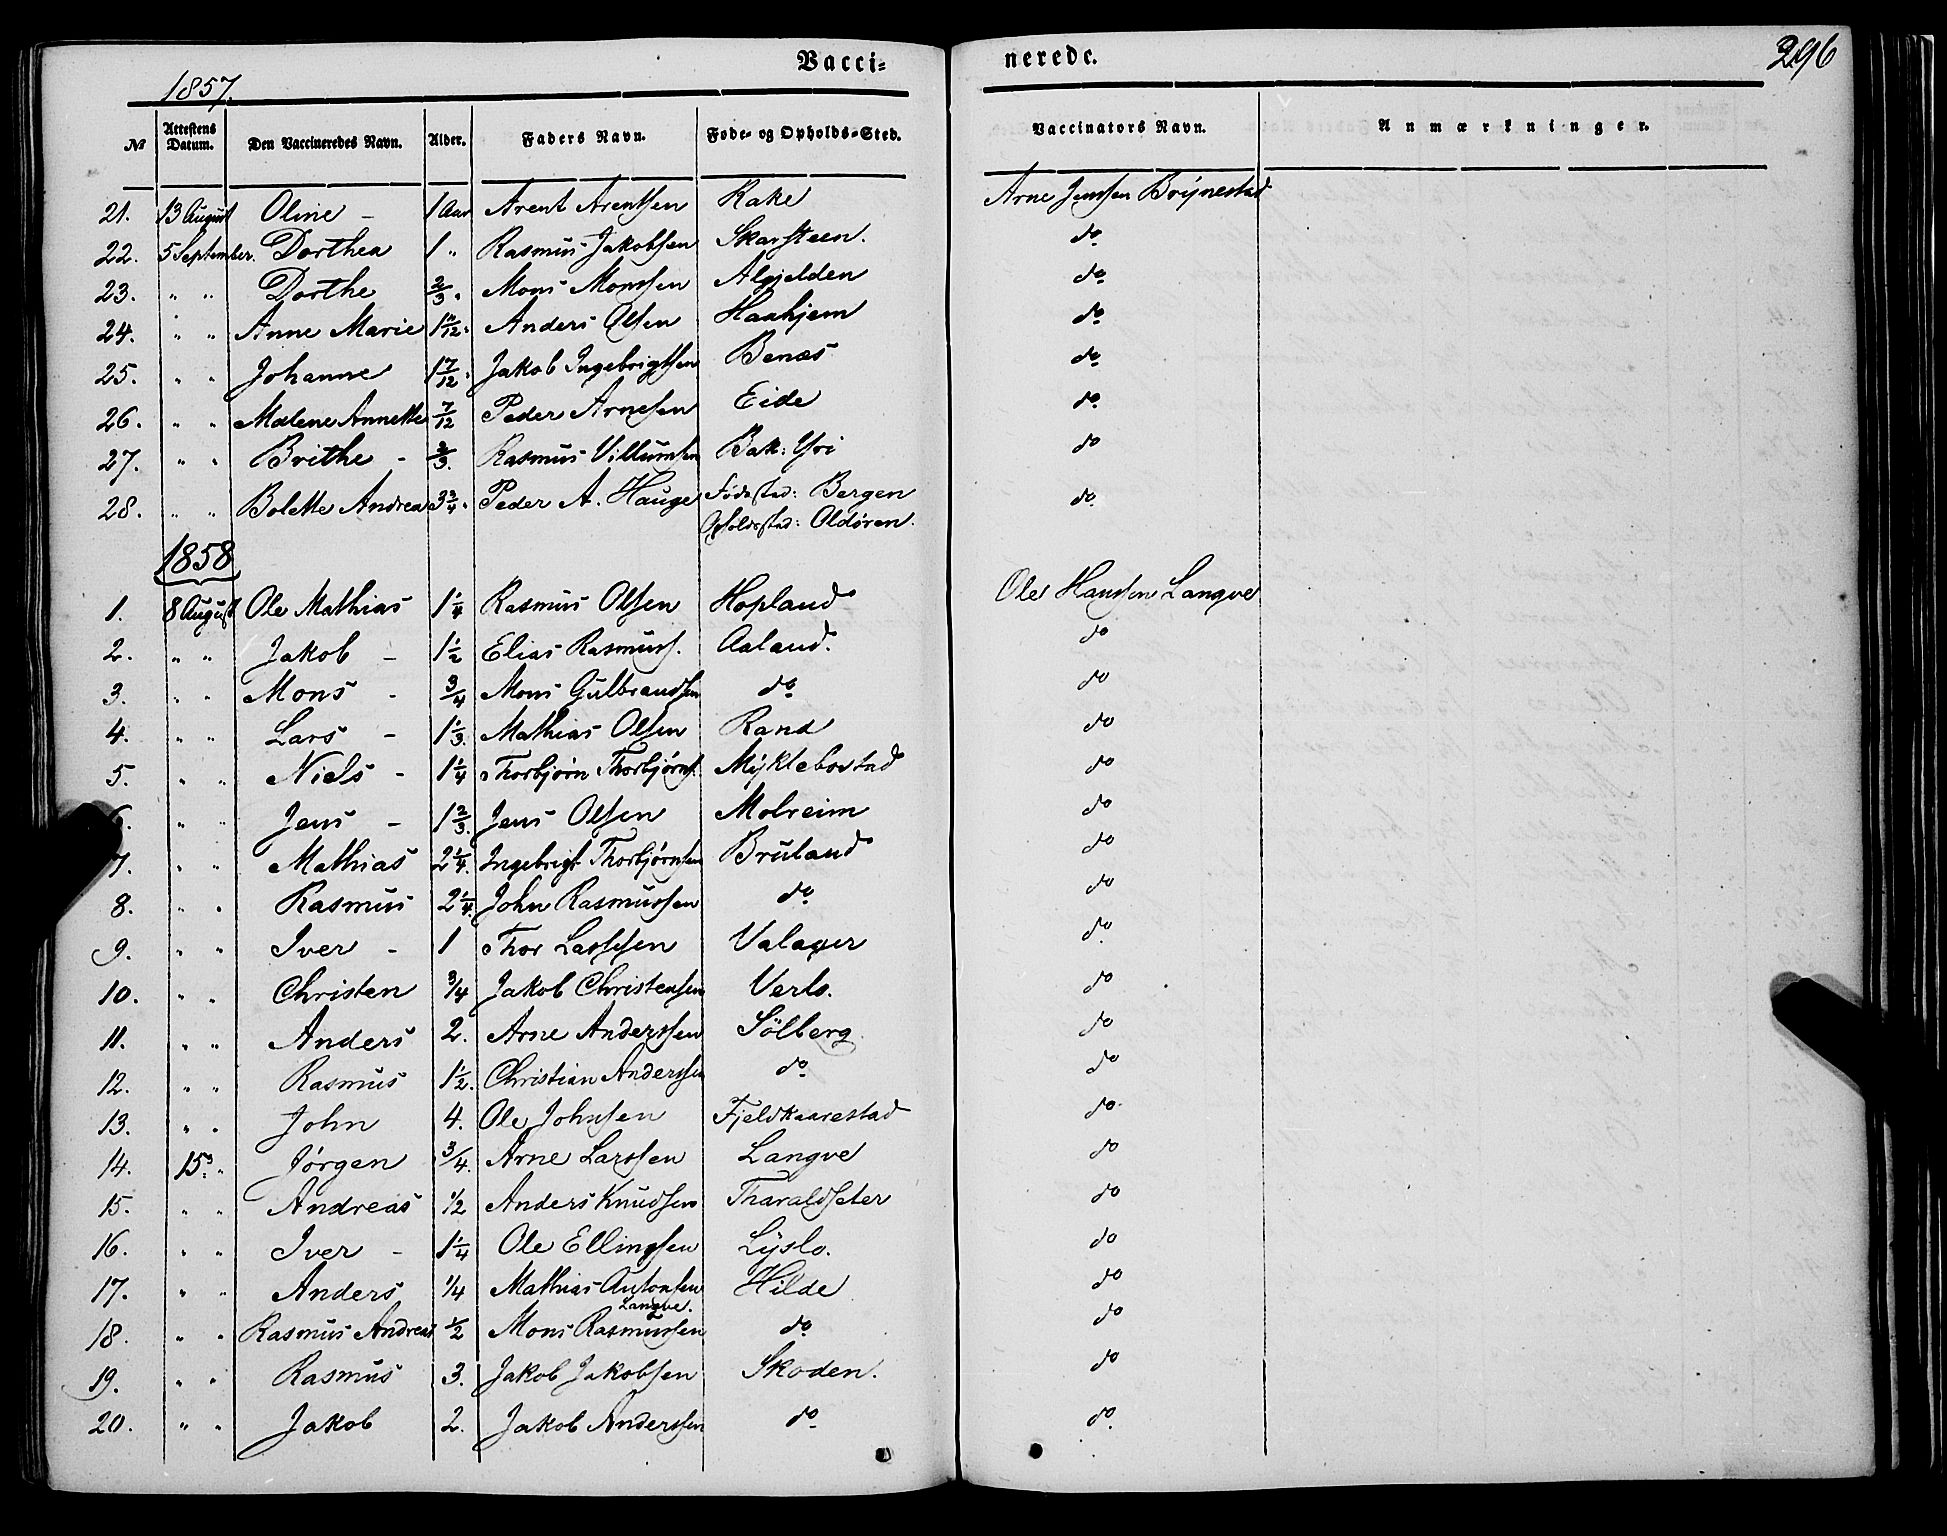 Vacci= nerede. 296
1857.
No Attestens Datum. Den Vaccineredes Navn. Alder. Faders Navn. Føde- og Opholds-Sted. Vaccinators Navn. Anmærkninger.
21. 13 August Oline - 1 Aar Arent Arentsen Rake Arne Jenssen Brynestad
22. 5 September. Dorthea 1 " Rasmus Jakobsen Skarsteen. do
23. " " Dorthe 2/3 " Mons Monssen Algjelden do
24. " " Anne Marie 1 11/12 " Anders Olsen Haahjem do
25. " " Johanne 1 7/12 " Jakob Ingebrigtsen Benæs do
26. " " Malene Annette 7/12 Peder Arnesen Eide do
27. " " Brithe - 2/3. Rasmus Villumsen Bak: Yri do
28. " " Bolette Andrea 3 3/4 " Peder A. Hauge Fødested: Bergen do
Opholdsted: Oldøren.
1858
1. 8 August Ole Mathias 1 1/4 Rasmus Olsen Hopland Ole Hanssen Langve
2. " " Jakob - 1 1/2 Elias Rasmuss. Aaland. do
3. " " Mons - 3/4 Mons Gulbrandsen do do
4. " " Lars - 1 1/3. Mathias Olsen Rand do
5. " " Niels - 1 1/4 Thorbjørn Thorbjørns. Myklebostad do
6. " " Jens - 1 2/3. Jens Olsen Molreim do
7. " " Mathias 2 1/4. Ingebrigt Thorbjørnsen Bruland do
8. " " Rasmus 2 1/4. John Rasmussen do do
9. " " Iver - 1 Thor Lassesen Valager do
10. " " Christen 3/4 Jakob Christensen Verlo. do
11. " " Anders 2. Arne Anderssen Sölberg do
12. " " Rasmus 1 1/2. Christian Anderssen do do
13. " " John 4. Ole Johnsen Fjeldkaarestad do
14. 15. " Jørgen 3/4. Arne Larssen Langve do
15. " " Andreas 1/2 Anders Knudsen Tharaldseter do
16. " " Iver - 1 1/4 Ole Ellingsen Lyslo. do
17. " " Anders 1/4 Mathias Antonsen Hilde do
Langve.
18. " " Rasmus Andreas 1/2 Mons Rasmussen do do
19. " " Rasmus 3. Jakob Jakobsen Skoden. do
20. " " Jakob 2. Jakob Anderssen do do